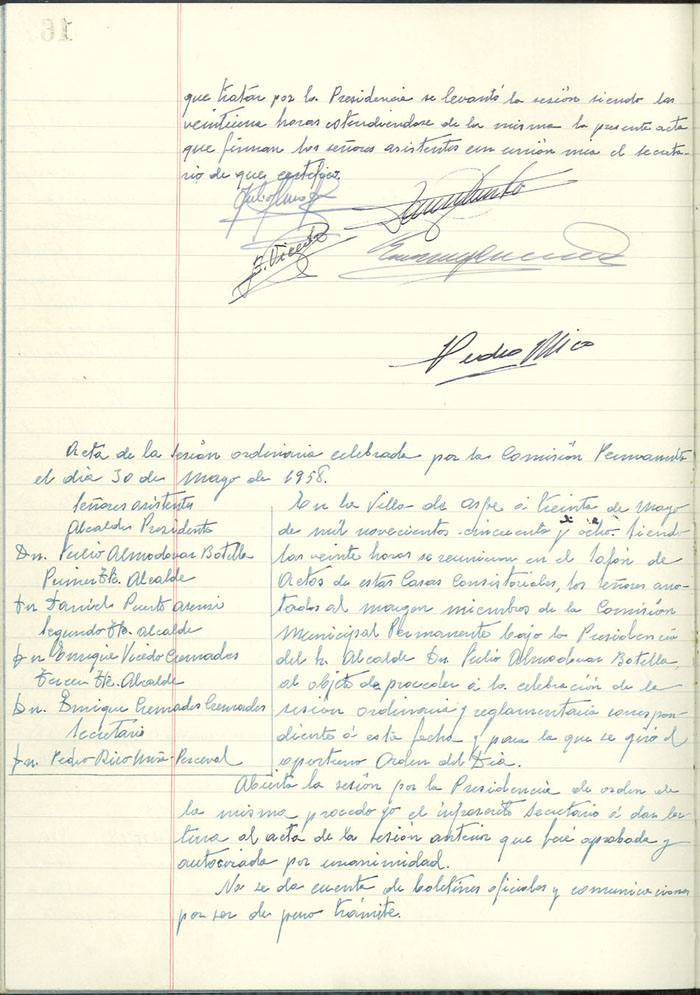 que tratar por la Presidencia se levantó la sesión siendo las
veintiuna horas extendiendose de la misma la presente acta
que firman los señores asistentes con unión mia el secreta-
rio de que certifico.
E. Vicedo
Pedro Rico
Acta de la sesión ordinaria celebrada por la Comisión Permanente
el dia 30 de Mayo de 1958.
Señores asistentes
Alcalde Presidente
Dn. Julio Almodovar Botella
Primer Tte. Alcalde
Dn Daniel Puerto
Segundo Tte. Alcalde
Dn Enrique Vicedo Cremades
Tercer Tte. Alcalde
Dn. Enrique Cremades Cremades
Secretario
Dn. Pedro Rico Perceval
En la Villa de Aspe á treinta de Mayo
de mil novecientos cincuenta y ocho. Siendo
las veinte horas se reunieron en el Salón de
Actos de estas Casas Consistoriales, los señores ano-
tados al margen miembros de la Comisión
Municipal Permanente bajo la Presidencia
del Sr. Alcalde Dn. Julio Almodovar Botella,
al objeto de proceder á la celebración de la
sesión ordinaria y reglamentaria correspon-
diente á esta fecha y para la que se giró el
oportuno Orden del Dia.
Abierta la sesión por la Presidencia de orden de
la misma procedo yo el infrascrito Secretario á dar lec-
tura al acta de la sesión anterior que fué aprobada y
autorizada por unanimidad.
No se da cuenta de boletines oficiales y comunicaciones
por ser de puro trámite.